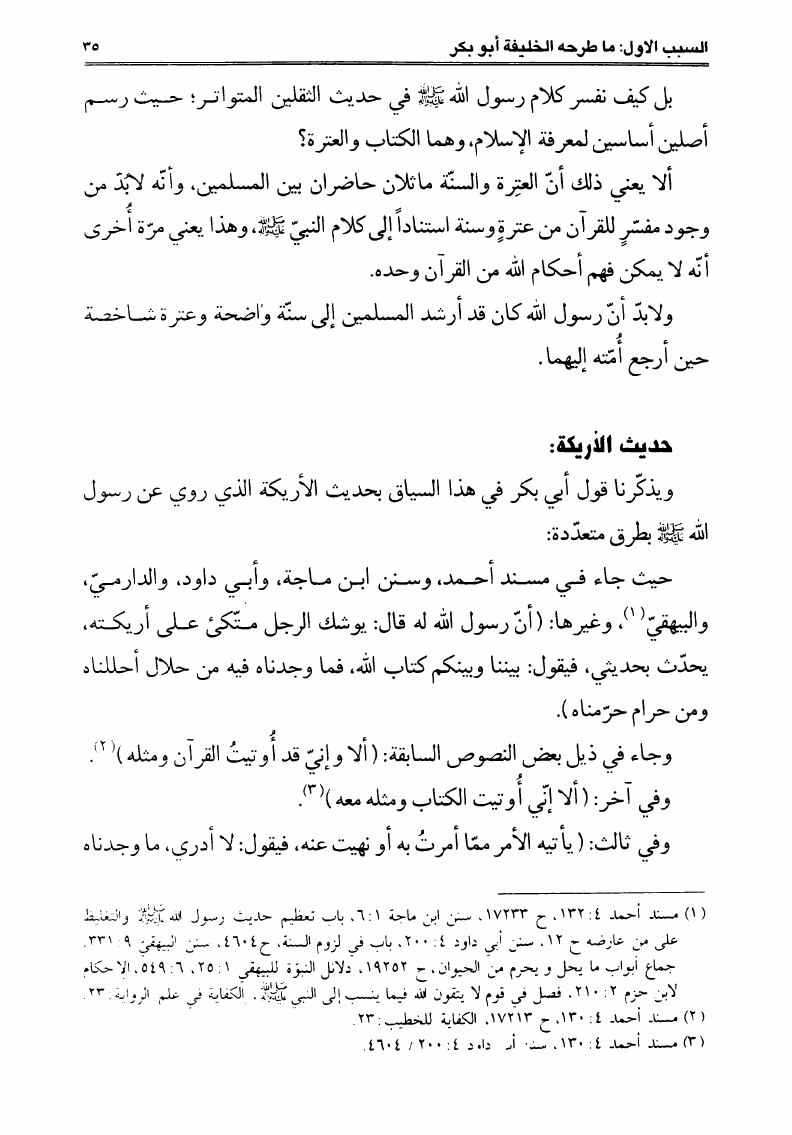 السبب الاول: ما طرحه الخليفة أبو بكر ٣٥
بل كيف نفسر كلام رسول الله ﷺ في حديث الثقلين المتواتر؛ حيث رسم
أصلين أساسين لمعرفة الإسلام، وهما الكتاب والعترة؟
ألا يعني ذلك أنّ العتِرة والسنّة ماثلان حاضران بين المسلمين، وأنّه لابُدّ من
وجود مفسّرٍ للقرآن من عترةٍ وسنة استناداً إلى كلام النبيّ ﷺ، وهذا يعني مرّة أُخرى
أنّه لا يمكن فهم أحكام الله من القرآن وحده.
ولابدّ أنّ رسول الله كان قد أرشد المسلمين إلى سنّة واضحة وعترة شاخصة
حين أرجع أُمّته إليهما.
حديث الأريكة:
ويذكّرنا قول أبي بكر في هذا السياق بحديث الأريكة الذي روي عن رسول
الله ﷺ بطرق متعدّدة:
حيث جاء في مسند أحمد، وسنن ابن ماجة، وأبي داود، والدارميّ،
والبيهقيّ(١)، وغيرها: (أنّ رسول الله له قال: يوشك الرجل متّكئ على أريكته،
يحدّث بحديثي، فيقول: بيننا وبينكم كتاب الله، فما وجدناه فيه من حلال أحللناه
ومن حرام حرّمناه).
وجاء في ذيل بعض النصوص السابقة: (ألا وإنيّ قد أُوتيتُ القرآن ومثله)(٢).
وفي آخر: (ألا إنّي أُوتيت الكتاب ومثله معه)(٣).
وفي ثالث: (يأتيه الأمر ممّا أمرتُ به أو نهيت عنه، فيقول: لا أدري، ما وجدناه
(١) مسند أحمد ٤: ١٣٢، ح ١٧٢٣٣، سنن ابن ماجة ١: ٦، باب تعظيم حديث رسول الله ﷺ والتغليظ
على من عارضه ح ١٢، سنن أبي داود ٤: ٢٠٠، باب في لزوم السنة، ح ٤٦٠٤، سنن البيهقي ٩: ٣٣١،
جماع أبواب ما يحل و يحرم من الحيوان، ح ١٩٢٥٢، دلائل النبوة للبيهقي ١: ٢٥، ٦: ٥٤٩، الاحكام
لابن حزم ٢: ٢١٠، فصل في قوم لا يتقون الله فيما ينسب إلى النبي ﷺ، الكفاية في علم الرواية: ٢٣.
(٢) مسند أحمد ٤: ١٣٠، ح ١٧٢١٣، الكفاية للخطيب: ٢٣.
(٣) مسند أحمد ٤: ١٣٠، سنن أبي داود ٤: ٢٠٠ / ٤٦٠٤.